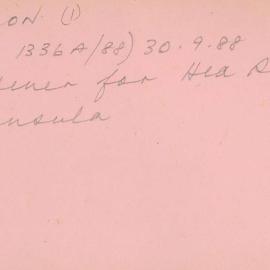 ON (1)
1336A/88) 30.9.88
for Hea
nsula